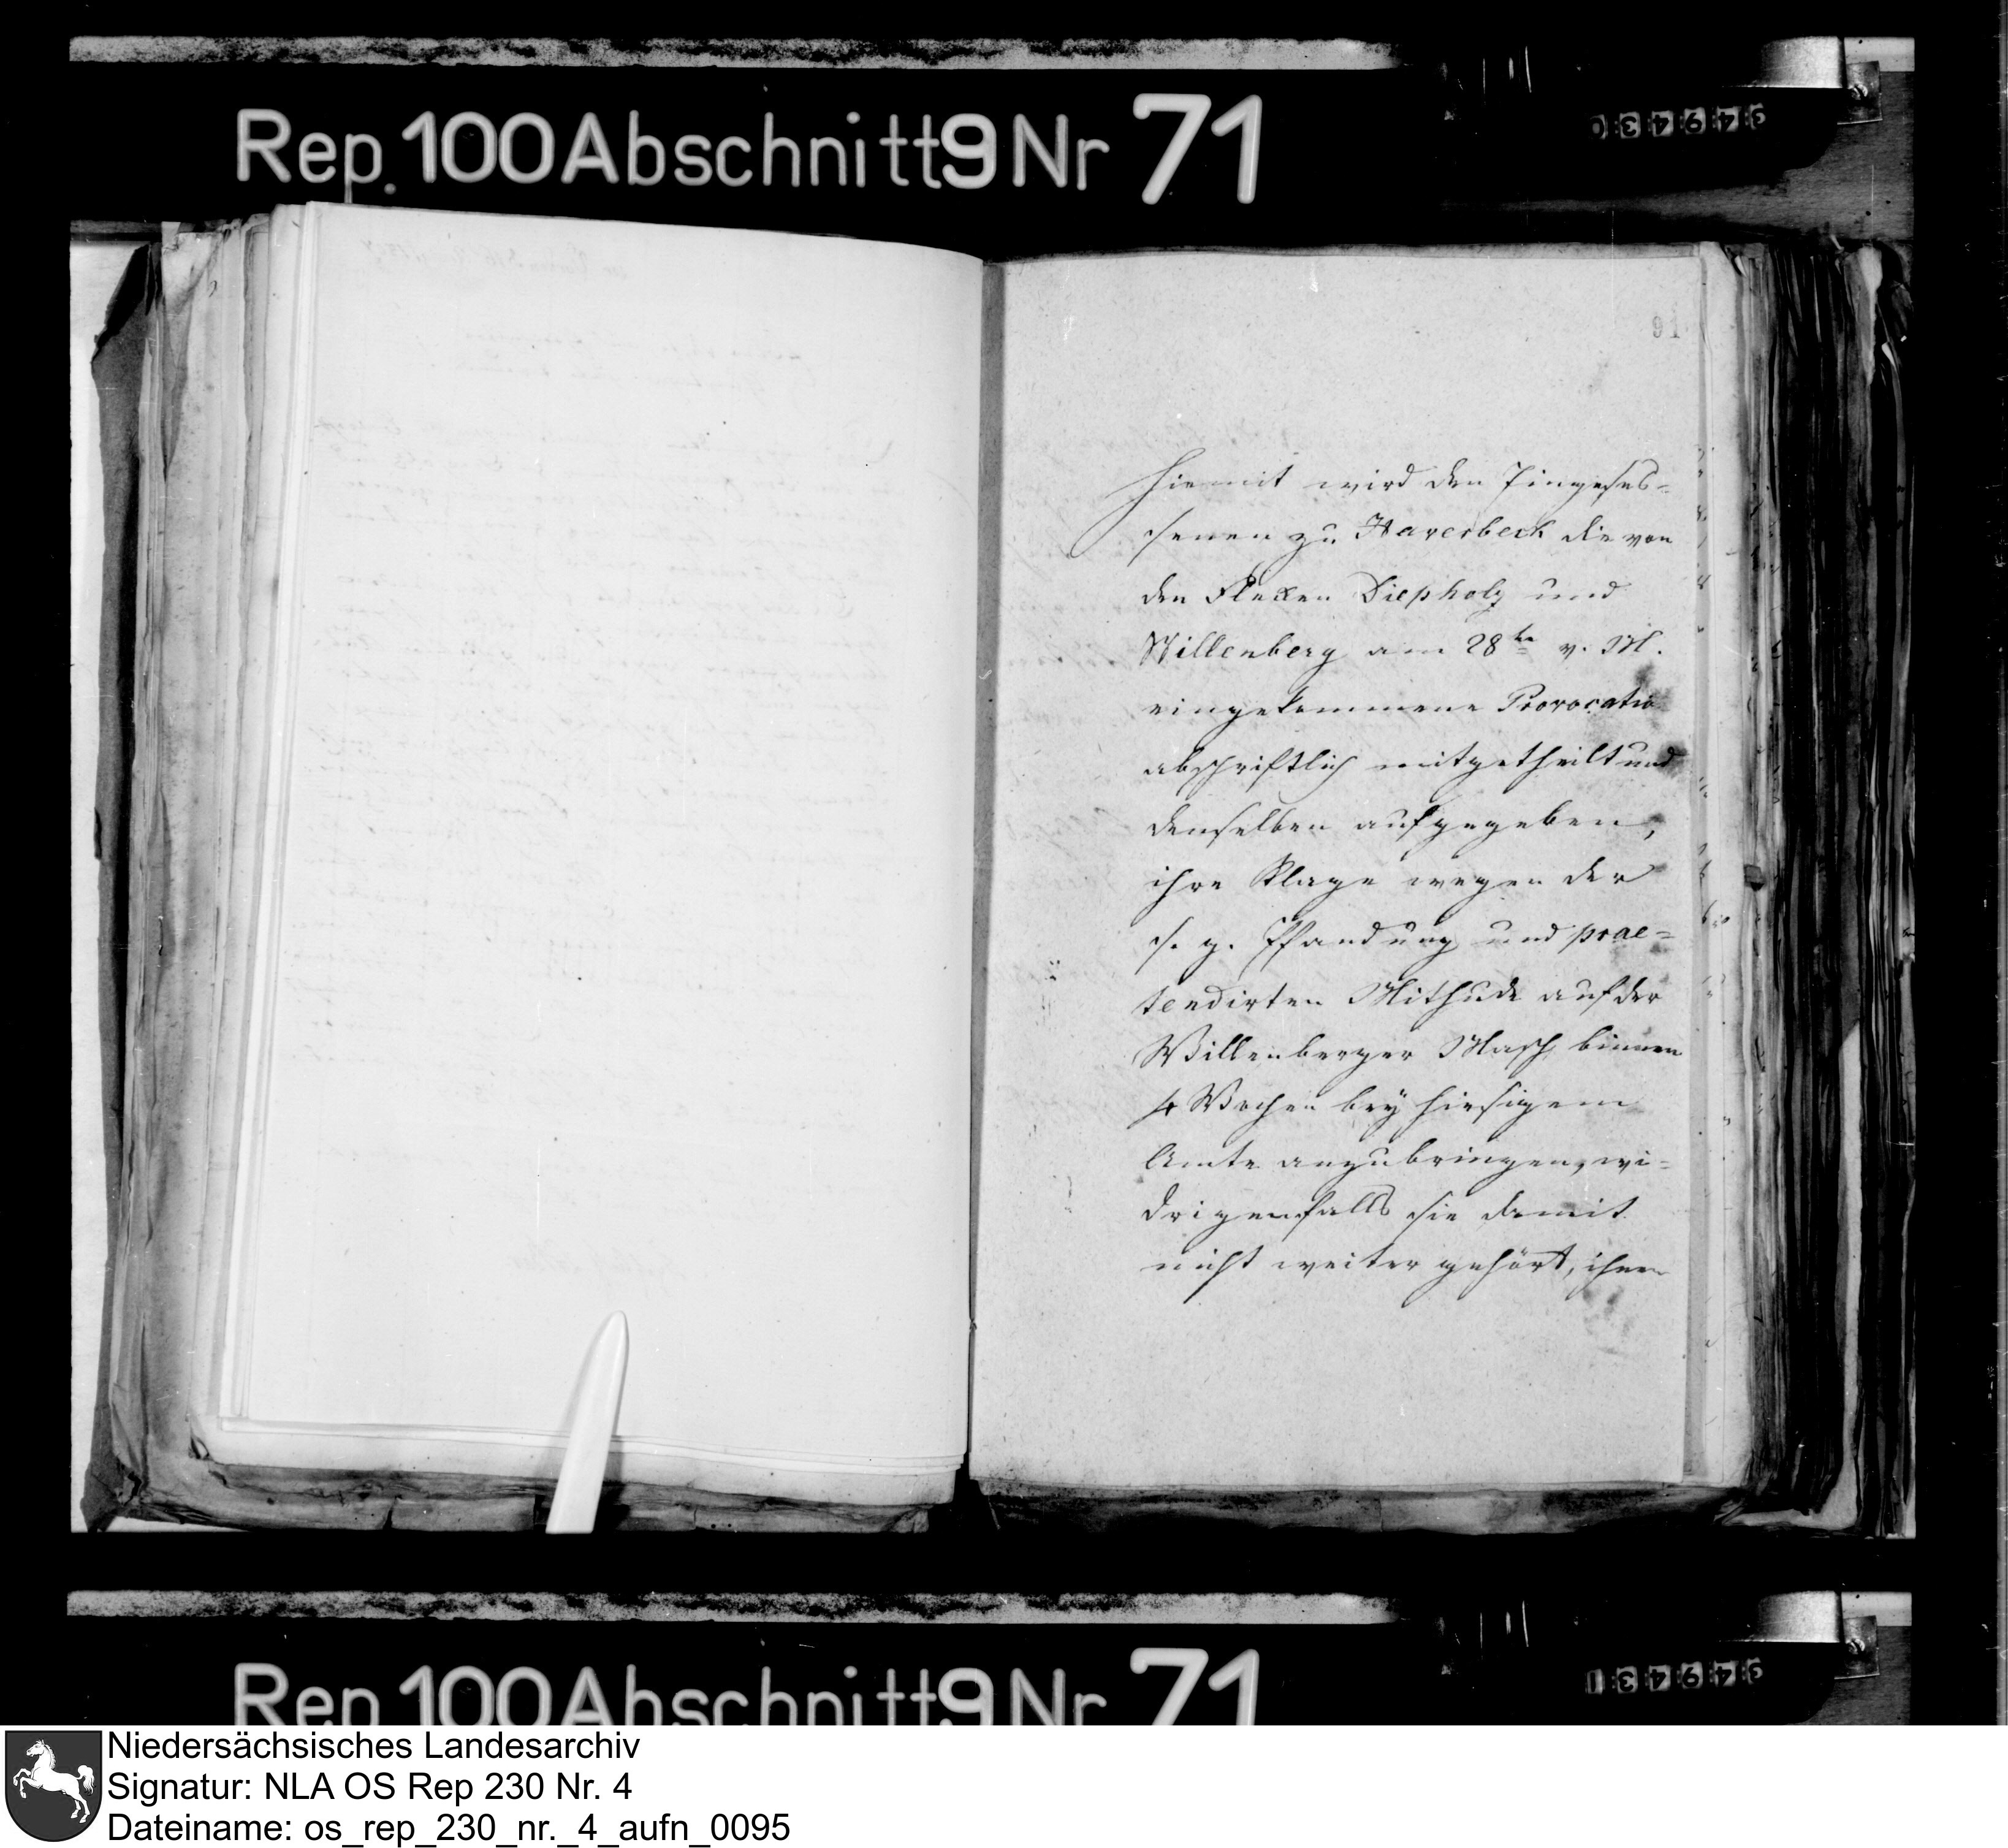 Rep. 100 Abschnitt 9 Nr 71
349430
91
Hiemit wird den Eingeses-
senen zu Haverbeck die von
den Flecken Diepholz und
Willenberg am 28ten v. M.
eingekommene Provocatio
abschriftlich mitgetheilt und
denselben aufgegeben,
ihre Klage wegen der
s. g. Pfandung und prae-
tendirten Mithude auf der
Willenberger Masch binnen
4 Wochen bey hiesigem
Amte anzubringen, wi-
drigenfalls sie damit
nicht weiter gehört, ihnen
Rep 100 Abschnitt 9 Nr 71
349431
Niedersächsisches Landesarchiv
Signatur: NLA OS Rep 230 Nr. 4
Dateiname: os_rep_230_nr._4_aufn_0095